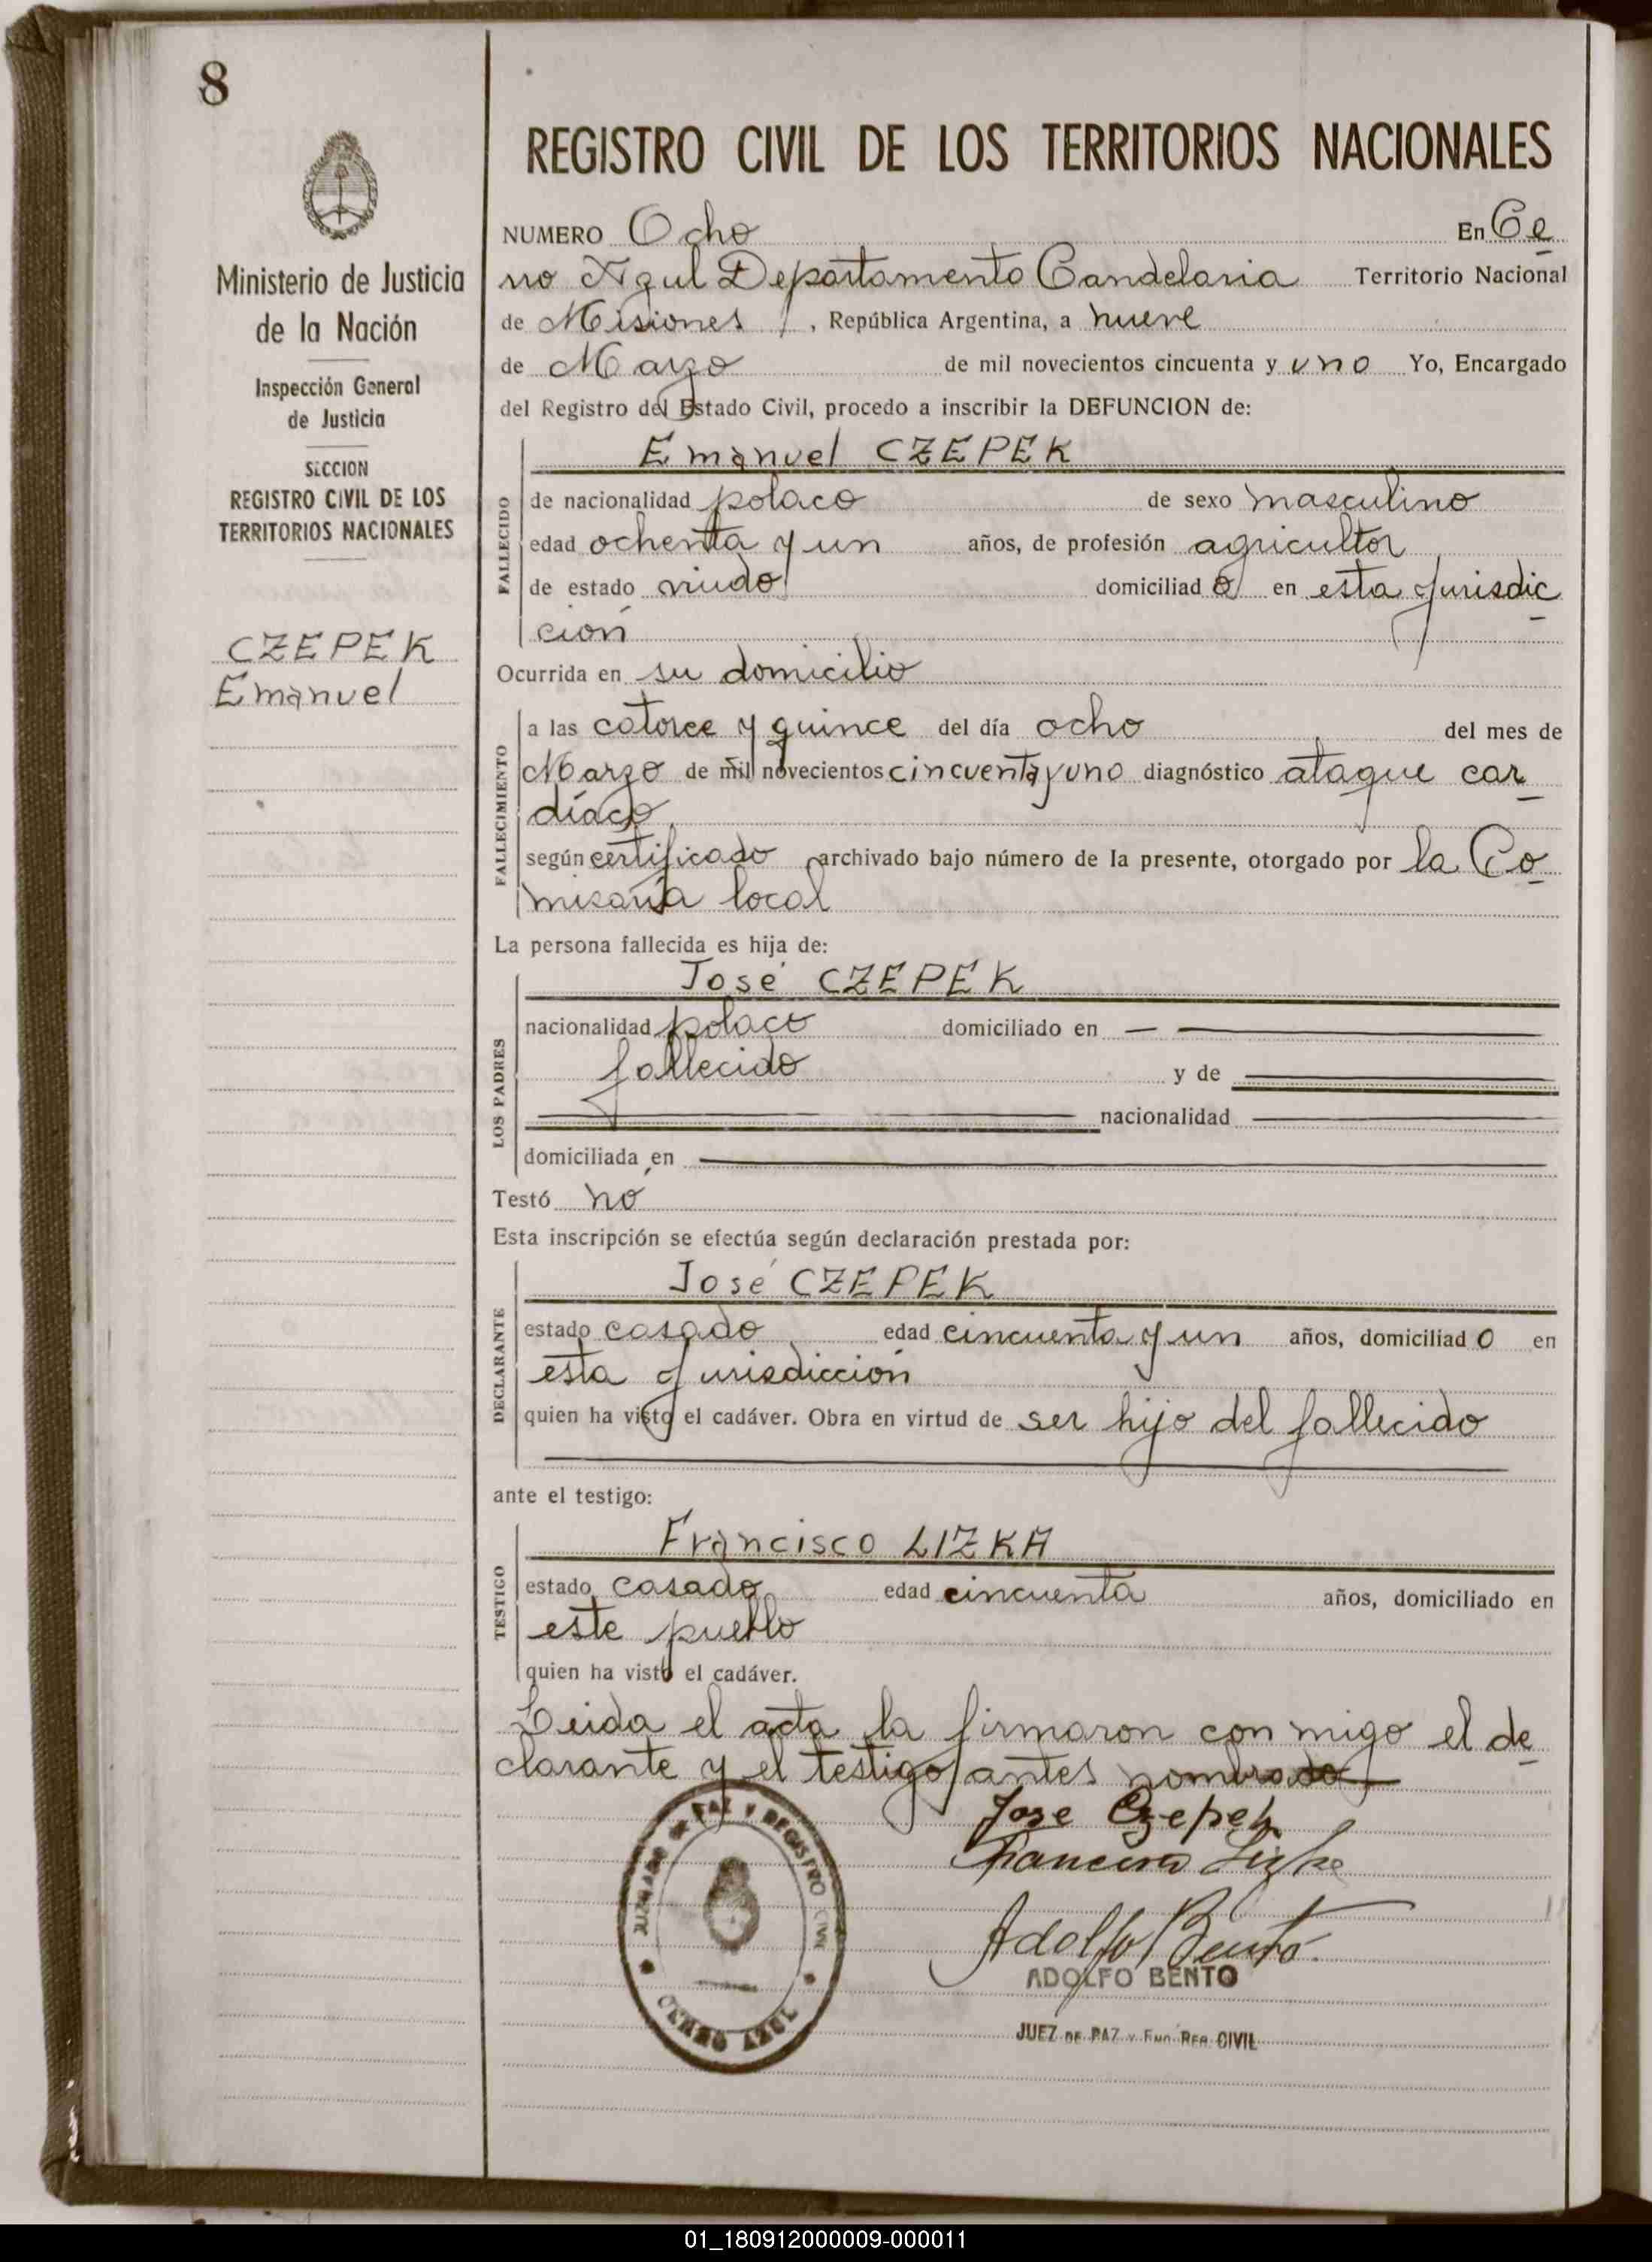 8
Ministerio de Justicia
de la Nación
Inspección General
de Justicia
SECCION
REGISTRO CIVIL DE LOS
TERRITORIOS NACIONALES
CZEPEK
Emanuel
REGISTRO CIVIL DE LOS TERRITORIOS NACIONALES
NUMERO Ocho En Ce
rro Azul Departamento Candelaria Territorio Nacional
de Misiones, República Argentina, a nueve
de Marzo de mil novecientos cincuenta y uno Yo, Encargado
del Registro del Estado Civil, procedo a inscribir la DEFUNCION de:
Emanuel CZEPEK
FALLECIDO
de nacionalidad polaco de sexo masculino
edad ochenta y un años, de profesión agricultor
de estado viudo domiciliado en esta jurisdic
ción
Ocurrida en su domicilio
FALLECIMIENTO
a las catorce y quince del día ocho del mes de
Marzo de mil novecientos cincuenta y uno diagnóstico ataque car
díaco
según certificado archivado bajo número de la presente, otorgado por la Co
misaría local
La persona fallecida es hija de:
LOS PADRES
José CZEPEK
nacionalidad polaco domiciliado en —
fallecido y de
nacionalidad
domiciliada en
Testó nó
Esta inscripción se efectúa según declaración prestada por:
DECLARANTE
José CZEPEK
estado casado edad cincuenta y un años, domiciliado en
esta jurisdicción
quien ha visto el cadáver. Obra en virtud de ser hijo del fallecido
ante el testigo:
TESTIGO
Francisco LIZKA
estado casado edad cincuenta años, domiciliado en
este pueblo
quien ha visto el cadáver.
Leida el acta la firmaron con migo el de
clarante y el testigo antes nombrado
Jose Czepek
Francisco Lizka
JUZGADO DE PAZ Y REGISTRO CIVIL
CERRO AZUL
Adolfo Bento
ADOLFO BENTO
JUEZ DE PAZ Y ENC. REG. CIVIL
01_180912000009-000011